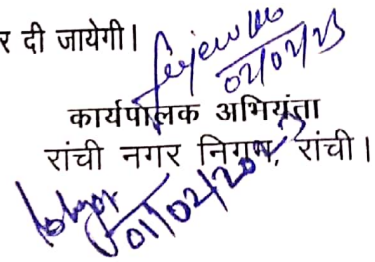 र दी जायेगी।
02/02/23
कार्यपालक अभियंता
रांची नगर निगम, रांची।
01/02/2023